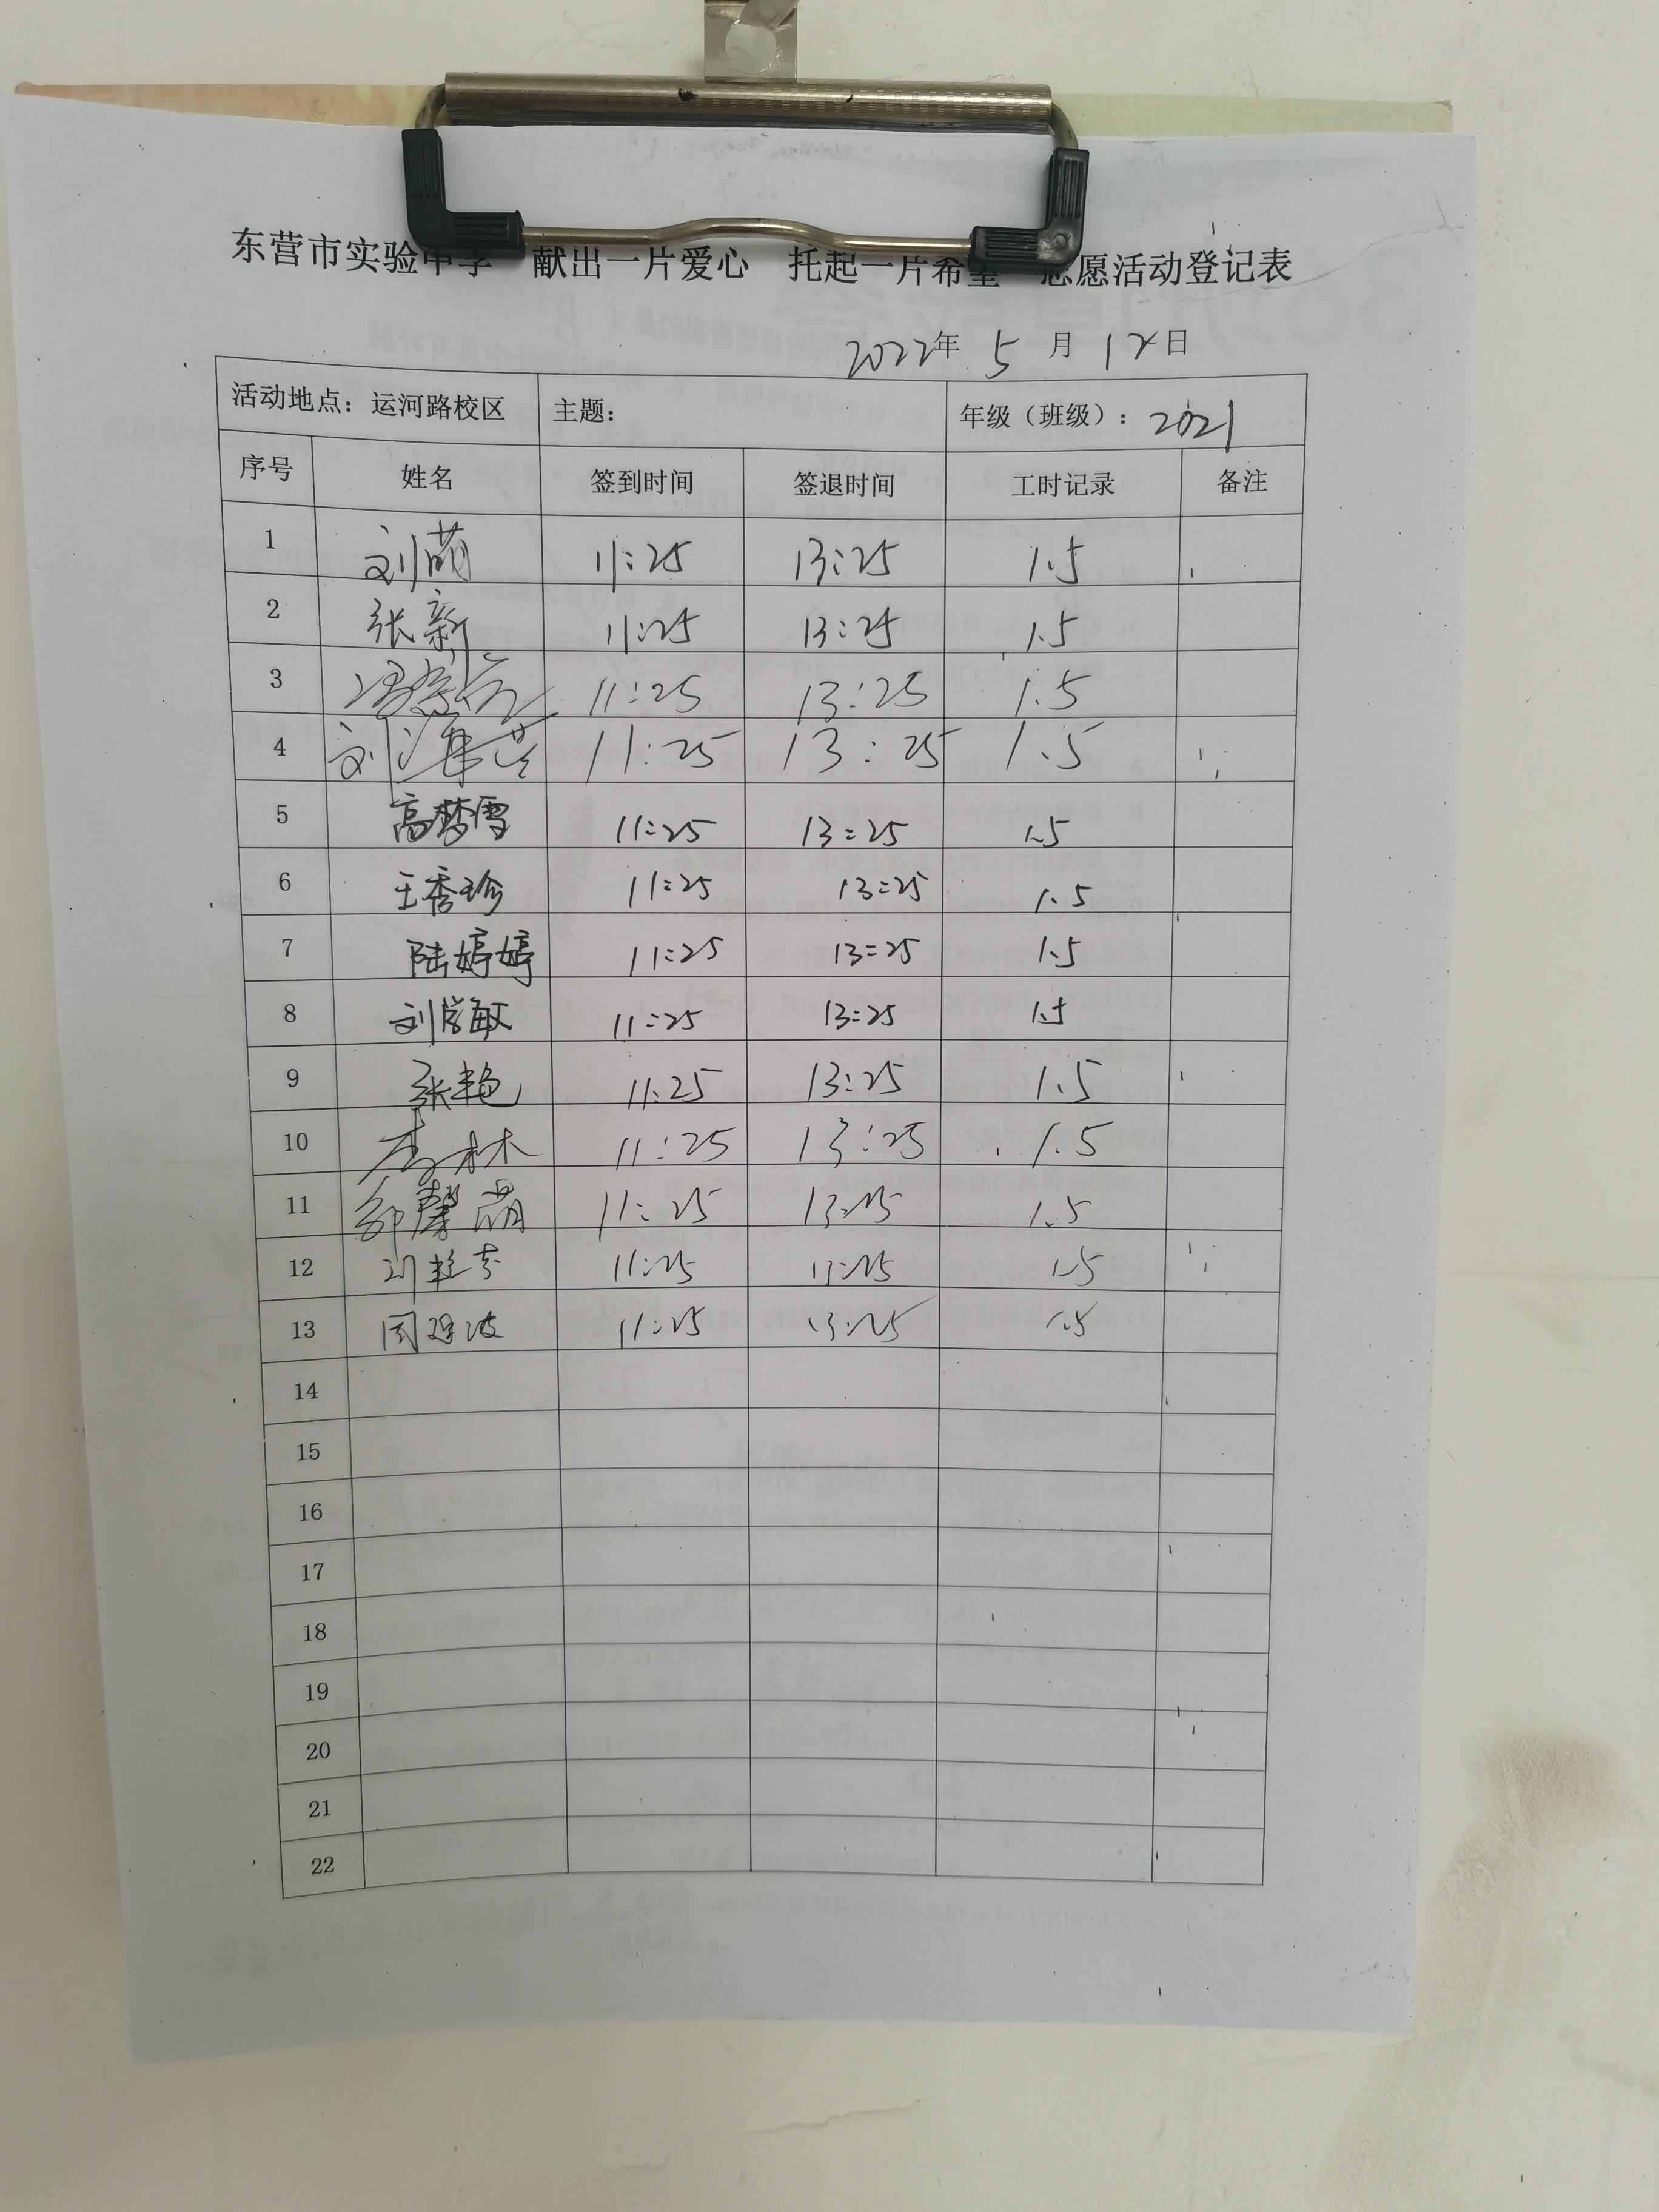 东营市实验中学 献出一片爱心 托起一片希望 志愿活动登记表
2022年 5 月 12 日
活动地点：运河路校区 主题： 年级（班级）：2021
序号 姓名 签到时间 签退时间 工时记录 备注
1 刘萌 11:25 13:25 1.5
2 张新 11:25 13:25 1.5
3 11:25 13:25 1.5
4 刘 11:25 13:25 1.5
5 高梦雪 11:25 13:25 1.5
6 王秀珍 11:25 13:25 1.5
7 陆婷婷 11:25 13:25 1.5
8 刘学敏 11:25 13:25 1.5
9 张艳 11:25 13:25 1.5
10 李林 11:25 13:25 1.5
11 馨萌 11:25 13:25 1.5
12 刘 11:25 13:25 1.5
13 周 波 11:25 13:25 1.5
14
15
16
17
18
19
20
21
22